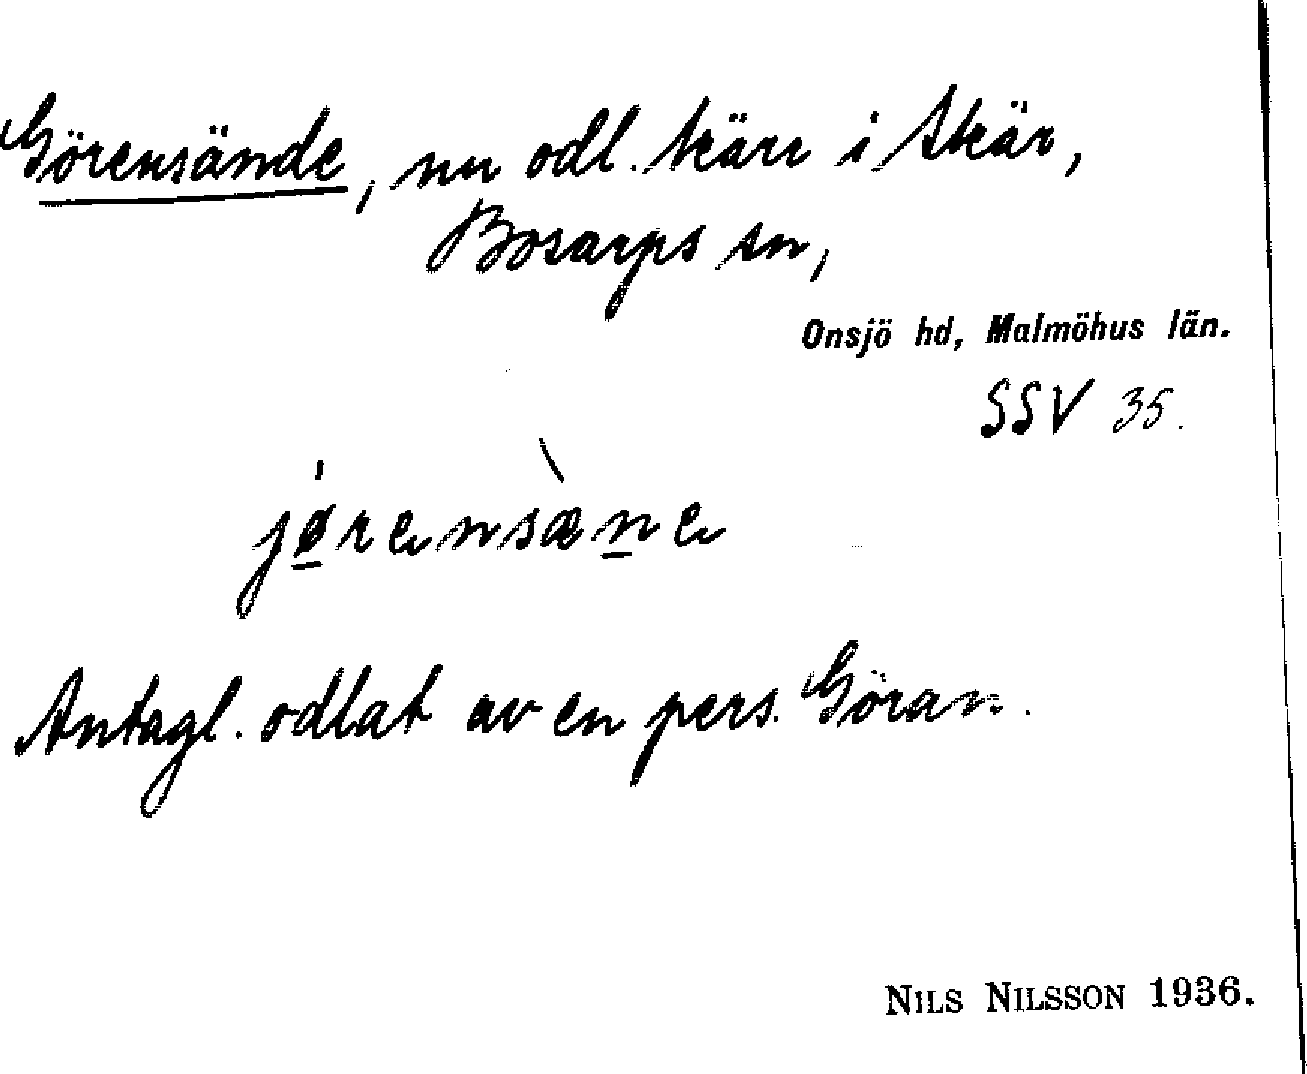 Görensände, nu odl. kärr i Skär,
Bosarps sn,
Onsjö hd, Malmöhus län.
SSV 35.
jørensæne
Antagl. odlat av en pers. Göran.
NILS NILSSON 1936.